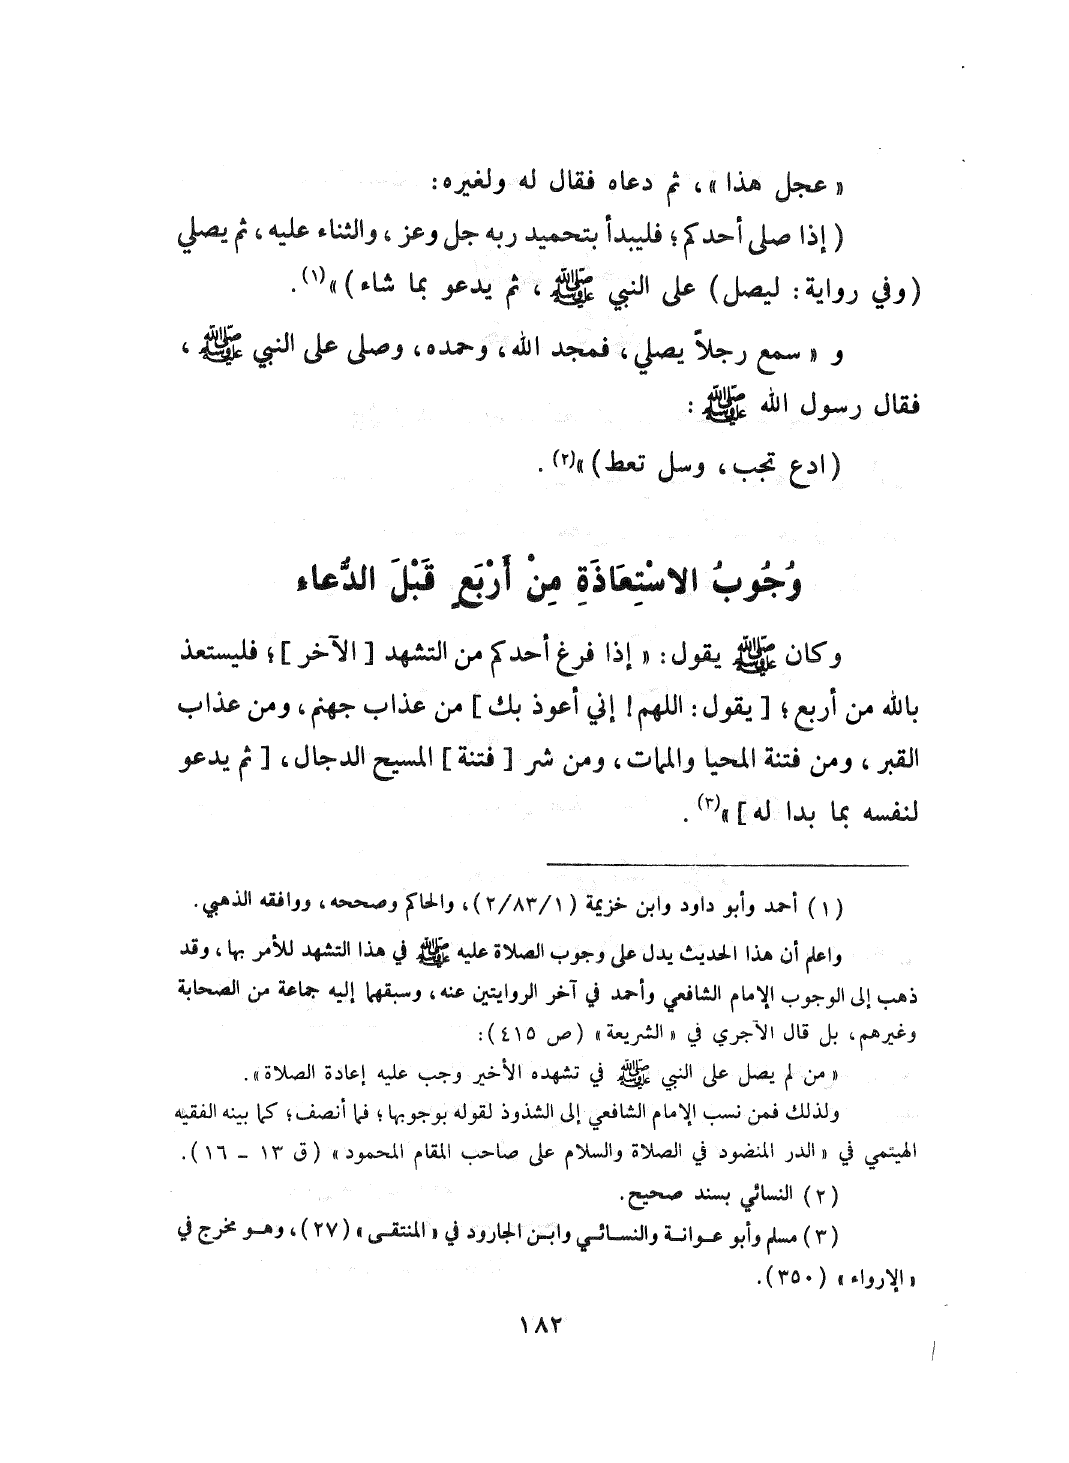 « عجل هذا »، ثم دعاه فقال له ولغيره:
( إذا صلى أحدكم؛ فليبدأ بتحميد ربه جل وعز، والثناء عليه، ثم يصلي
(وفي رواية: ليصل) على النبي ﷺ، ثم يدعو بما شاء)»(١).
و « سمع رجلاً يصلي، فمجد الله، وحمده، وصلى على النبي ﷺ،
فقال رسول الله ﷺ:
(ادع تجب، وسل تعط)»(٢).
وُجُوبُ الاسْتِعَاذَةِ مِنْ أَرْبَعٍ قَبْلَ الدُّعاء
وكان ﷺ يقول: « إذا فرغ أحدكم من التشهد [ الآخر ]؛ فليستعذ
بالله من أربع؛ [ يقول: اللهم! إني أعوذ بك ] من عذاب جهنم، ومن عذاب
القبر، ومن فتنة المحيا والممات، ومن شر [ فتنة ] المسيح الدجال، [ ثم يدعو
لنفسه بما بدا له ]»(٣).
(١) أحمد وأبو داود وابن خزيمة (٢/٨٣/١)، والحاكم وصححه، ووافقه الذهبي.
واعلم أن هذا الحديث يدل على وجوب الصلاة عليه ﷺ في هذا التشهد للأمر بها، وقد
ذهب إلى الوجوب الإمام الشافعي وأحمد في آخر الروايتين عنه، وسبقهما إليه جماعة من الصحابة
وغيرهم، بل قال الآجري في « الشريعة » (ص ٤١٥):
« من لم يصل على النبي ﷺ في تشهده الأخير وجب عليه إعادة الصلاة».
ولذلك فمن نسب الإمام الشافعي إلى الشذوذ لقوله بوجوبها؛ فما أنصف؛ كما بينه الفقيه
الهيتمي في « الدر المنضود في الصلاة والسلام على صاحب المقام المحمود » (ق ١٣ - ١٦).
(٢) النسائي بسند صحيح.
(٣) مسلم وأبو عوانة والنسائي وابن الجارود في « المنتقى » (٢٧)، وهو مخرج في
« الإرواء » (٣٥٠).
١٨٢